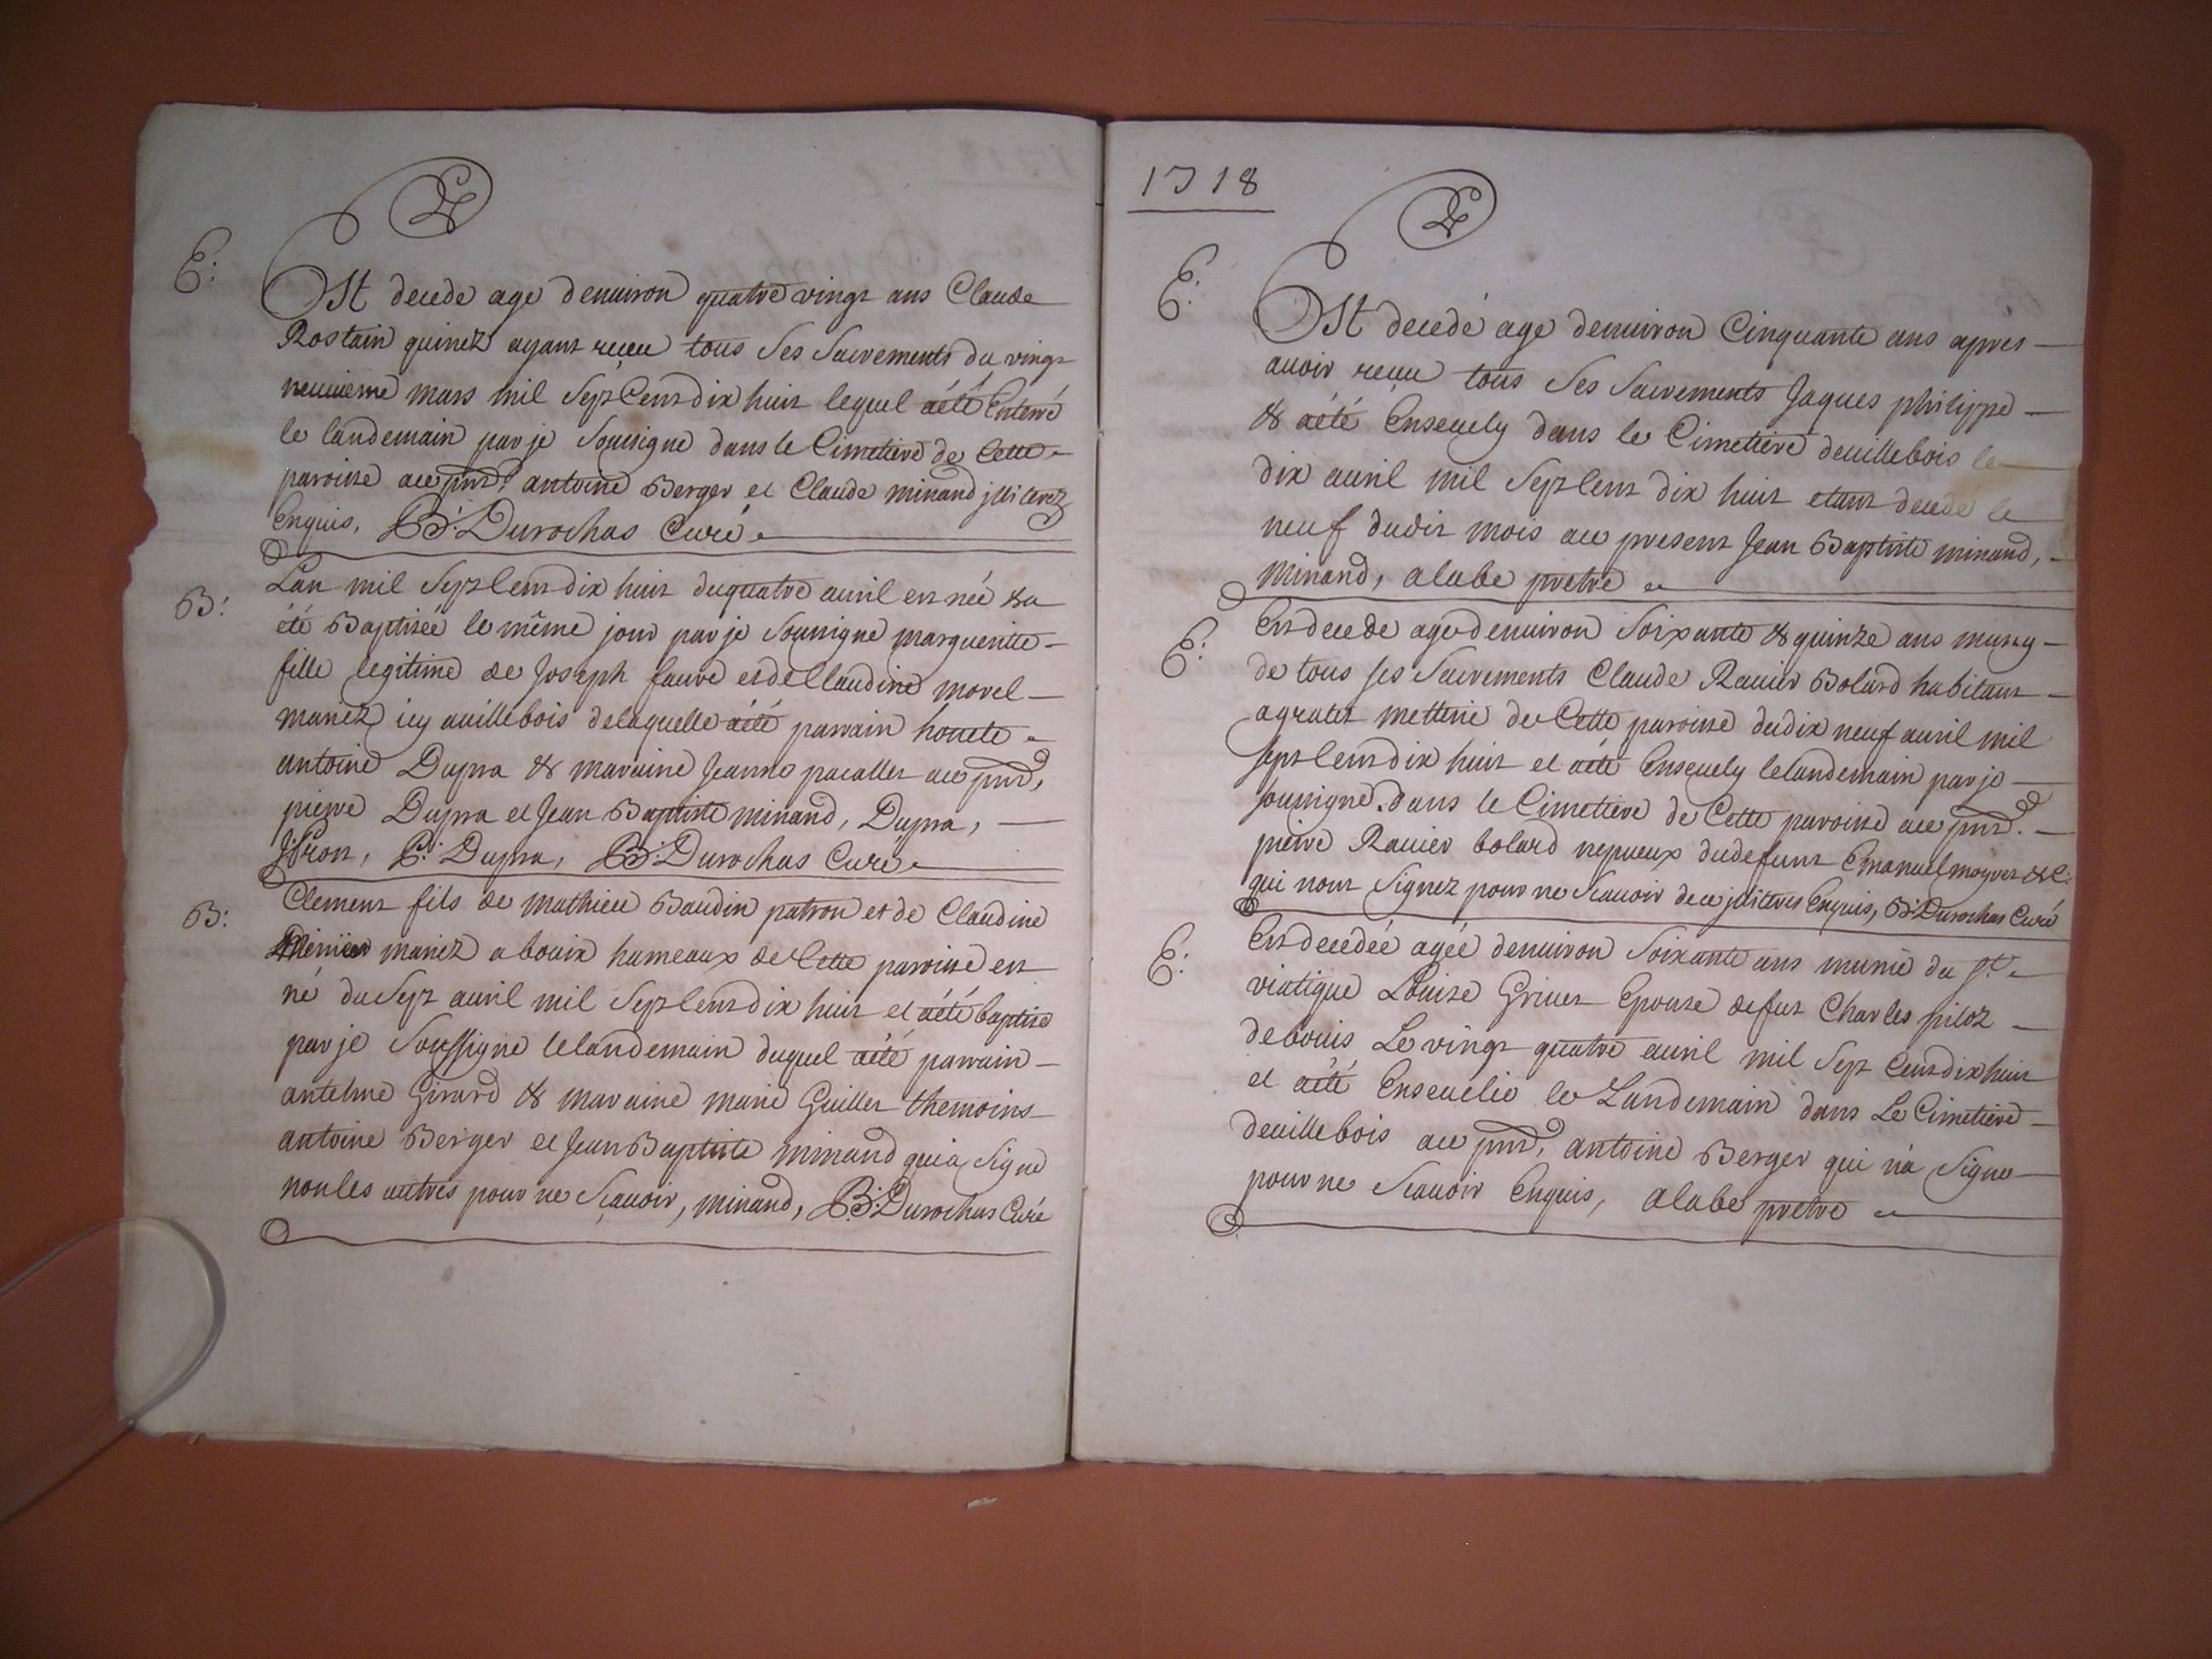 E:
Est decede age denuiron quatre vingt ans Claude
Rostain quinez ayant receu tous ses sacrements du vingt
neuuieme mars mil sept cent dix huit lequel a été Enterré
le landemain par je soussigné dans le Cimetiere de Cette
paroisse ace pnts antoine Berger et Claude minand illiterez
Enquis, B: Durochas Curé
B:
Lan mil sept cent dix huit du quatre auril est née & a
été Baptisée le même jour par je soussigne marguerite
fille legitime de Joseph faure et de Claudine morel
mariez icy a uillebois delaquelle a été parrain honete
antoine Dupra & maraine Jeanne pacallet ace pnts,
pierre Dupra et Jean Baptiste minand, Dupra,
P: Dupra, B: Durochas Curé
B:
Clement fils de mathieu Baudin patron et de Claudine
mariez a bouix hameaux de Cette paroisse est
né du sept auril mil sept cent dix huit et a été baptise
par je soussigne le landemain duquel a été parrain
antelme Girard & maraine marie Guillet themoins
antoine Berger et Jean Baptiste minand qui a signe
non les autres pour ne scauoir, minand, B: Durochas Curé
1718
E:
Est decedé age denuiron Cinquante ans apres
auoir reçeu tous ses sacrements Jaques philippe
& a été Enseuely dans le Cimetiere de uillebois le
dix auril mil sept cent dix huit etant decede le
neuf dudit mois ace present Jean Baptiste minand,
Minand, alabe pretre
E:
Est decede age denuiron soixante & quinze ans muny
de tous ses sacrements Claude Rauier Bolard habitant
a gratet metterie de Cette paroisse du dix neuf auril mil
sept cent dix huit et a été Enseuely le landemain par je
soussigne dans le Cimetiere de Cette paroisse ace pnts.
pierre Rauier bolard nepueux du defunt Emanuel moyret &c:
qui nont signez pour ne scauoir de ce illiteres Enquis, B: Durochas Curé
E:
Est decedée agée denuiron soixante ans munie du st
viatique Louise Griuet Epouse de fut Charles piloz
de bouis Le vingt quatre auril mil sept Cent dix huit
et a été Enseuelie le Landemain dans Le Cimetiere
de uillebois ace pnts, antoine Berger qui n'a signe
pour ne scauoir Enquis, alabe pretre